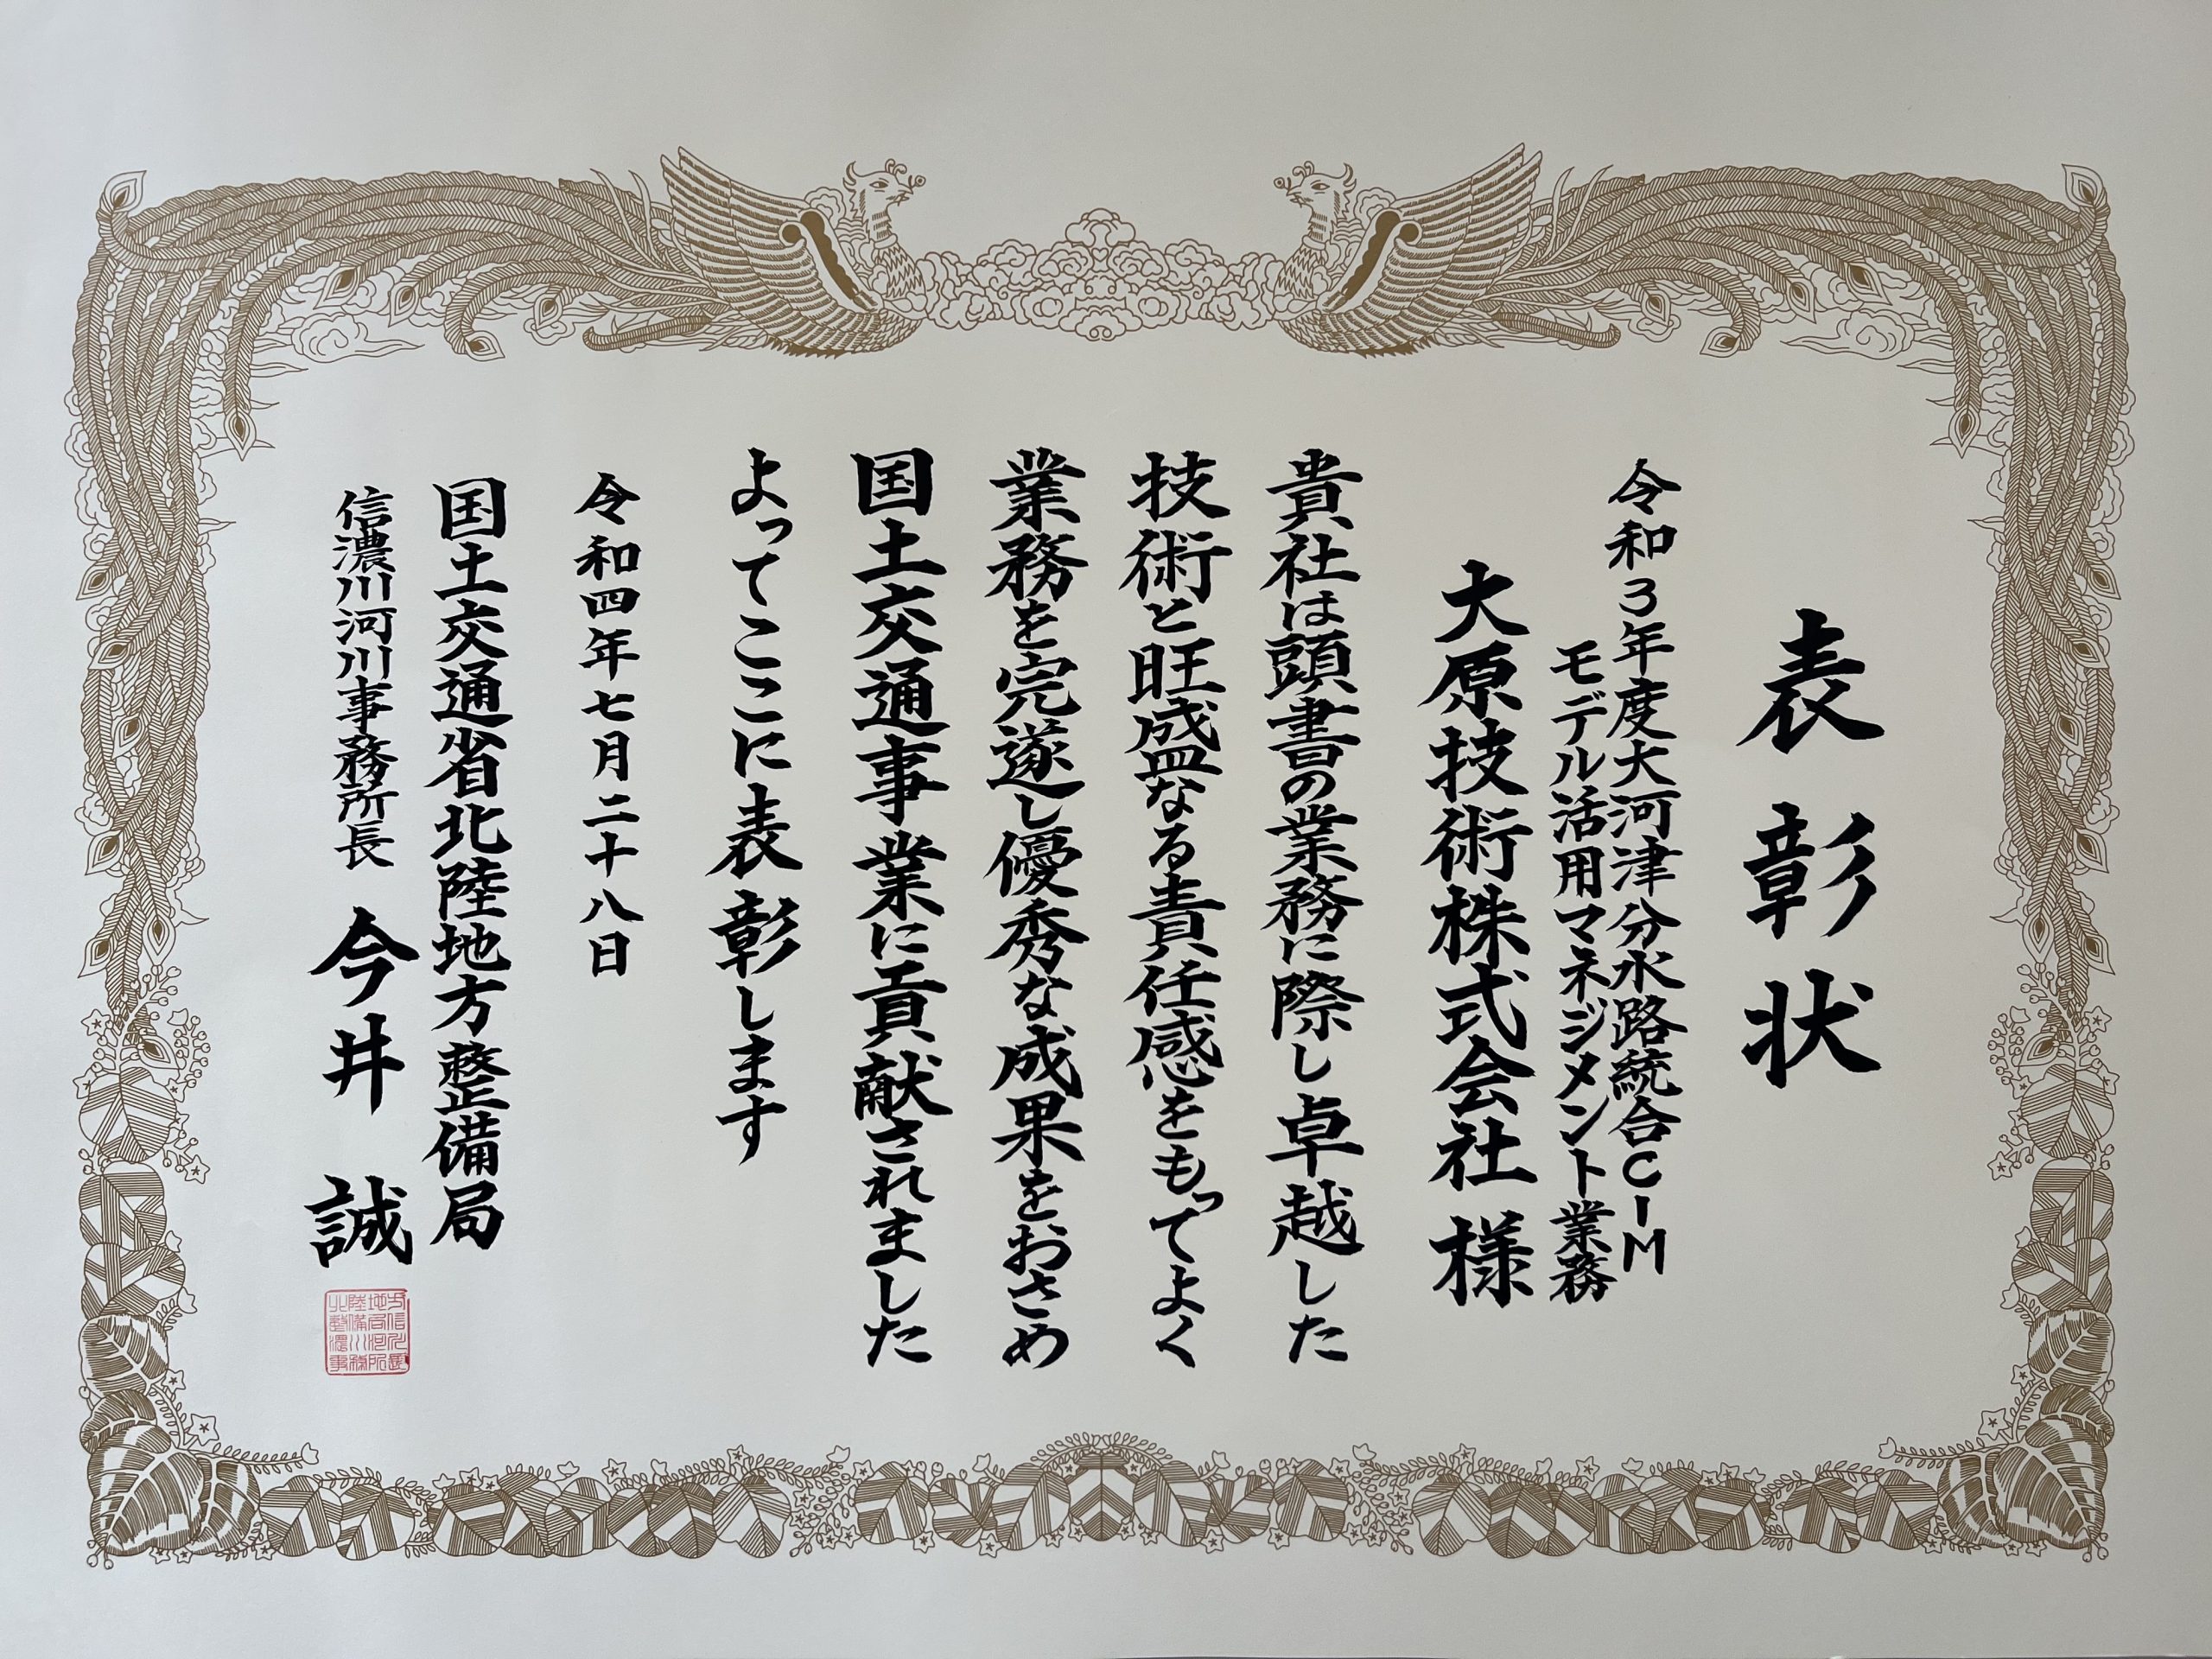 表彰状
令和3年度大河津分水路統合CIM
モデル活用マネジメント業務
大原技術株式会社 様
貴社は頭書の業務に際し卓越した
技術と旺盛なる責任感をもってよく
業務を完遂し優秀な成果をおさめ
国土交通事業に貢献されました
よってここに表彰します
令和四年七月二十八日
国土交通省北陸地方整備局
信濃川河川事務所長 今井 誠